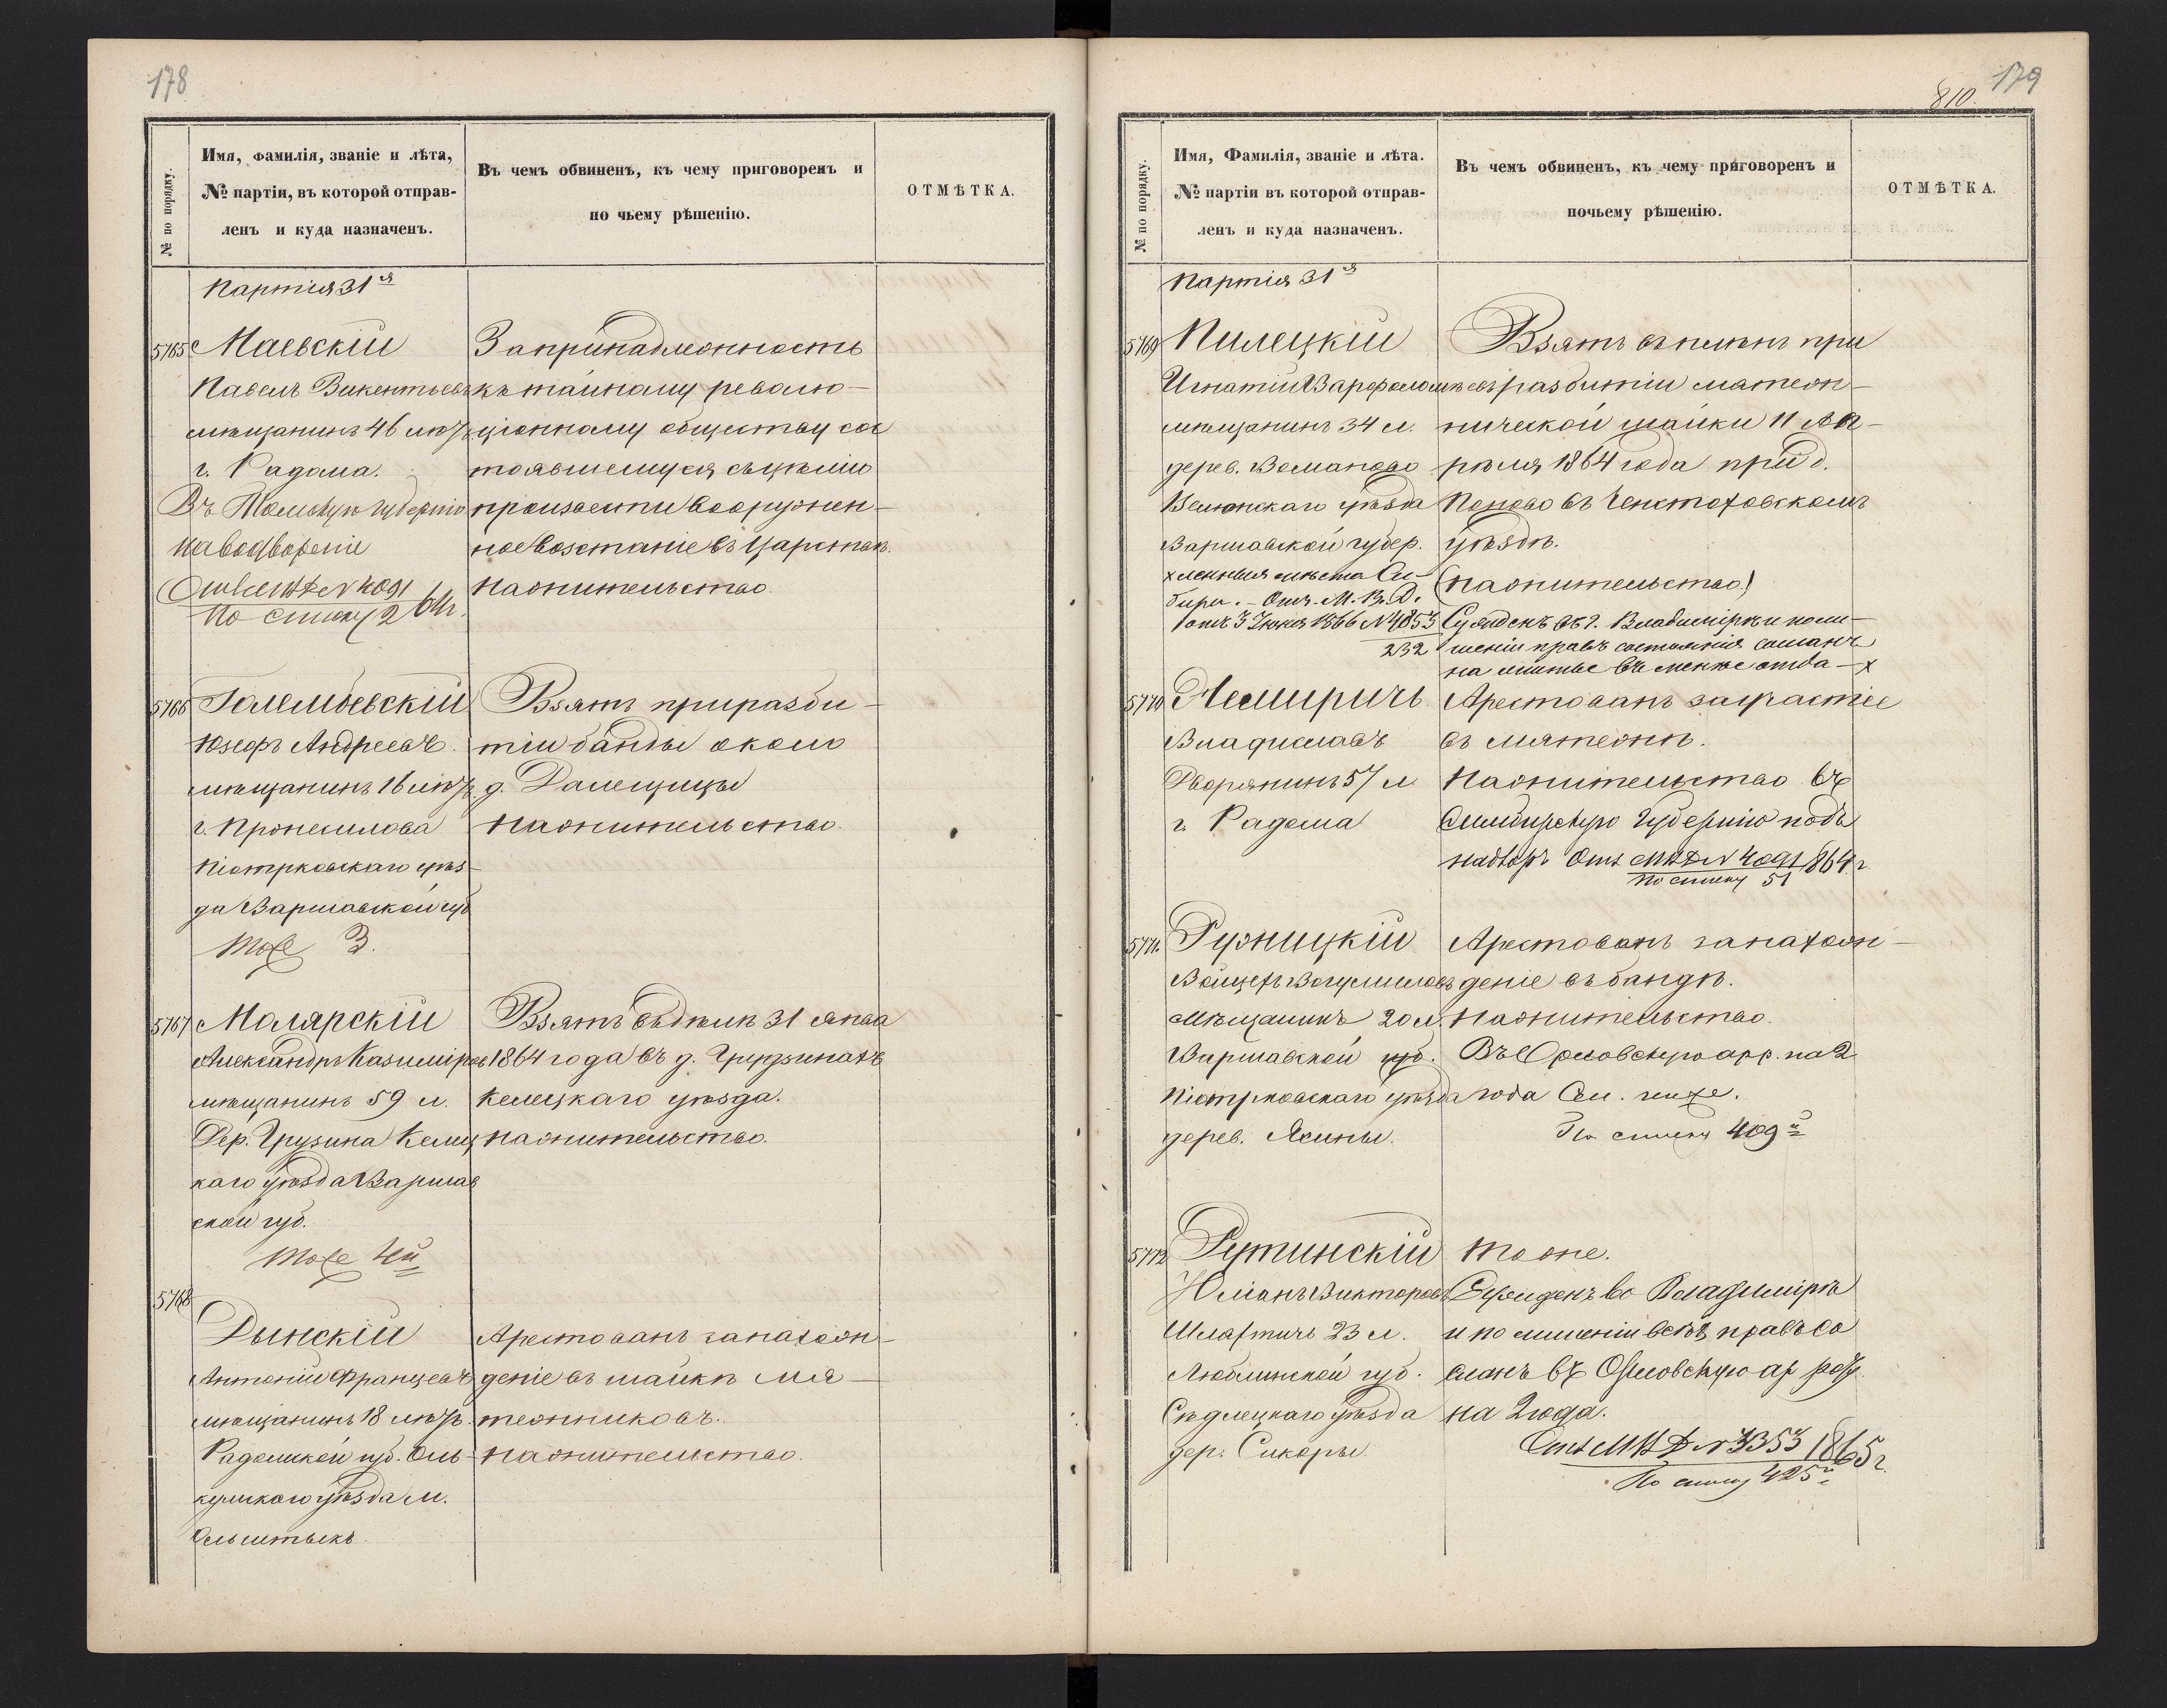 178
№ по порядку.
Имя, фамилія, званіе и лѣта,
№ партіи, въ которой отправ-
ленъ и куда назначенъ.
Въ чемъ обвиненъ, къ чему приговоренъ и
по чьему рѣшенію.
ОТМѢТКА.
Партія 31я
5765 Маевскій
Павелъ Викентьевъ
мѣщанинъ 46 лѣтъ
г. Радома.
Въ Томскую губернію
на водвореніе
Отн. МВД № 4091
По списку 2 64 г.
За принадлежность
къ тайному револю-
ціонному обществу сос
тоявшемуся съ цѣлію
произвести вооружен-
ное возстаніе въ Царствѣ.
На жительство.
5766 Голембевскій
Юзефъ Андреевъ.
мѣщанинъ 16 лѣтъ.
г.
Піотрковскаго уѣз-
да Варшавской губ
Тоже 3.
Взятъ при разби-
тіи банды около
д. Далешицы
На жительство.
5767 Молярскій
Александръ Казиміровъ
мѣщанинъ 59 л.
Дер. Грузина Келец
каго уѣзда Варшав
ской губ.
Тоже 4й
Взятъ въ дѣлѣ 31 Янва
1864 года въ д.
Келецкаго уѣзда.
На жительство.
5768
Дынскій
Антоній Францевъ
мѣщанинъ 18 лѣтъ.
Радомской губ. Оль-
кушскаго уѣзда м.
Арестованъ за нахож-
деніе въ шайкѣ мя-
тежниковъ.
На жительство.
179
810.
№ по порядку.
Имя, Фамилія, званіе и лѣта.
№ партіи въ которой отправ-
ленъ и куда назначенъ.
Въ чемъ обвиненъ, къ чему приговоренъ и
почьему рѣшенію.
ОТМѢТКА.
Партія 31я
5769 Пилецкій
Игнатій Варфоломѣевъ
мѣщанинъ 34 л.
дерев.
Велюнскаго уѣзда
Варшавской губер.
х ленныя мѣста Си-
бири. - Отн. М. В. Д.
отъ 3 Іюня 1866 № 4853
232
Взятъ въ плѣнъ при
разбитіи мятеж-
нической шайки 11 Ап-
рѣля 1864 года при д.
Попово въ Ченстоховскомъ
уѣздѣ.
(На жительство)
Сужденъ въ г. Владимірѣ и по ли-
шеніи правъ состоянія сосланъ
на житье въ менѣе отда- х
5770 Немиричъ
Владиславъ
Дворянинъ 57 л.
г. Радома
Арестованъ за участіе
въ мятежѣ.
На жительство въ
Симбирскую Губернію подъ
надзоръ Отн. МВД № 4091 1864 г.
По списку 51
5771. Ружицкій
Войцехъ
Мѣщанинъ 20 л.
Варшавской губ.
Піотрковскаго уѣзда
дерев. Ясины.
Арестованъ за нахож-
деніе въ бандѣ.
На жительство.
Въ Орловскую арр. на 2
года См. ниже.
По списку 409й
5772 Рутинскій
Юліанъ Викторовъ
Шляхтичъ 23 л.
Люблинской губ.
Сѣдлецкаго уѣзда
дер. Сикоры.
Тоже.
Сужденъ во Владимірѣ
и по лишеніи всѣхъ правъ со
сланъ въ Орловскую ар роту
на 2 года.
Отн МВД № 3353 1865 г.
По списку 425й